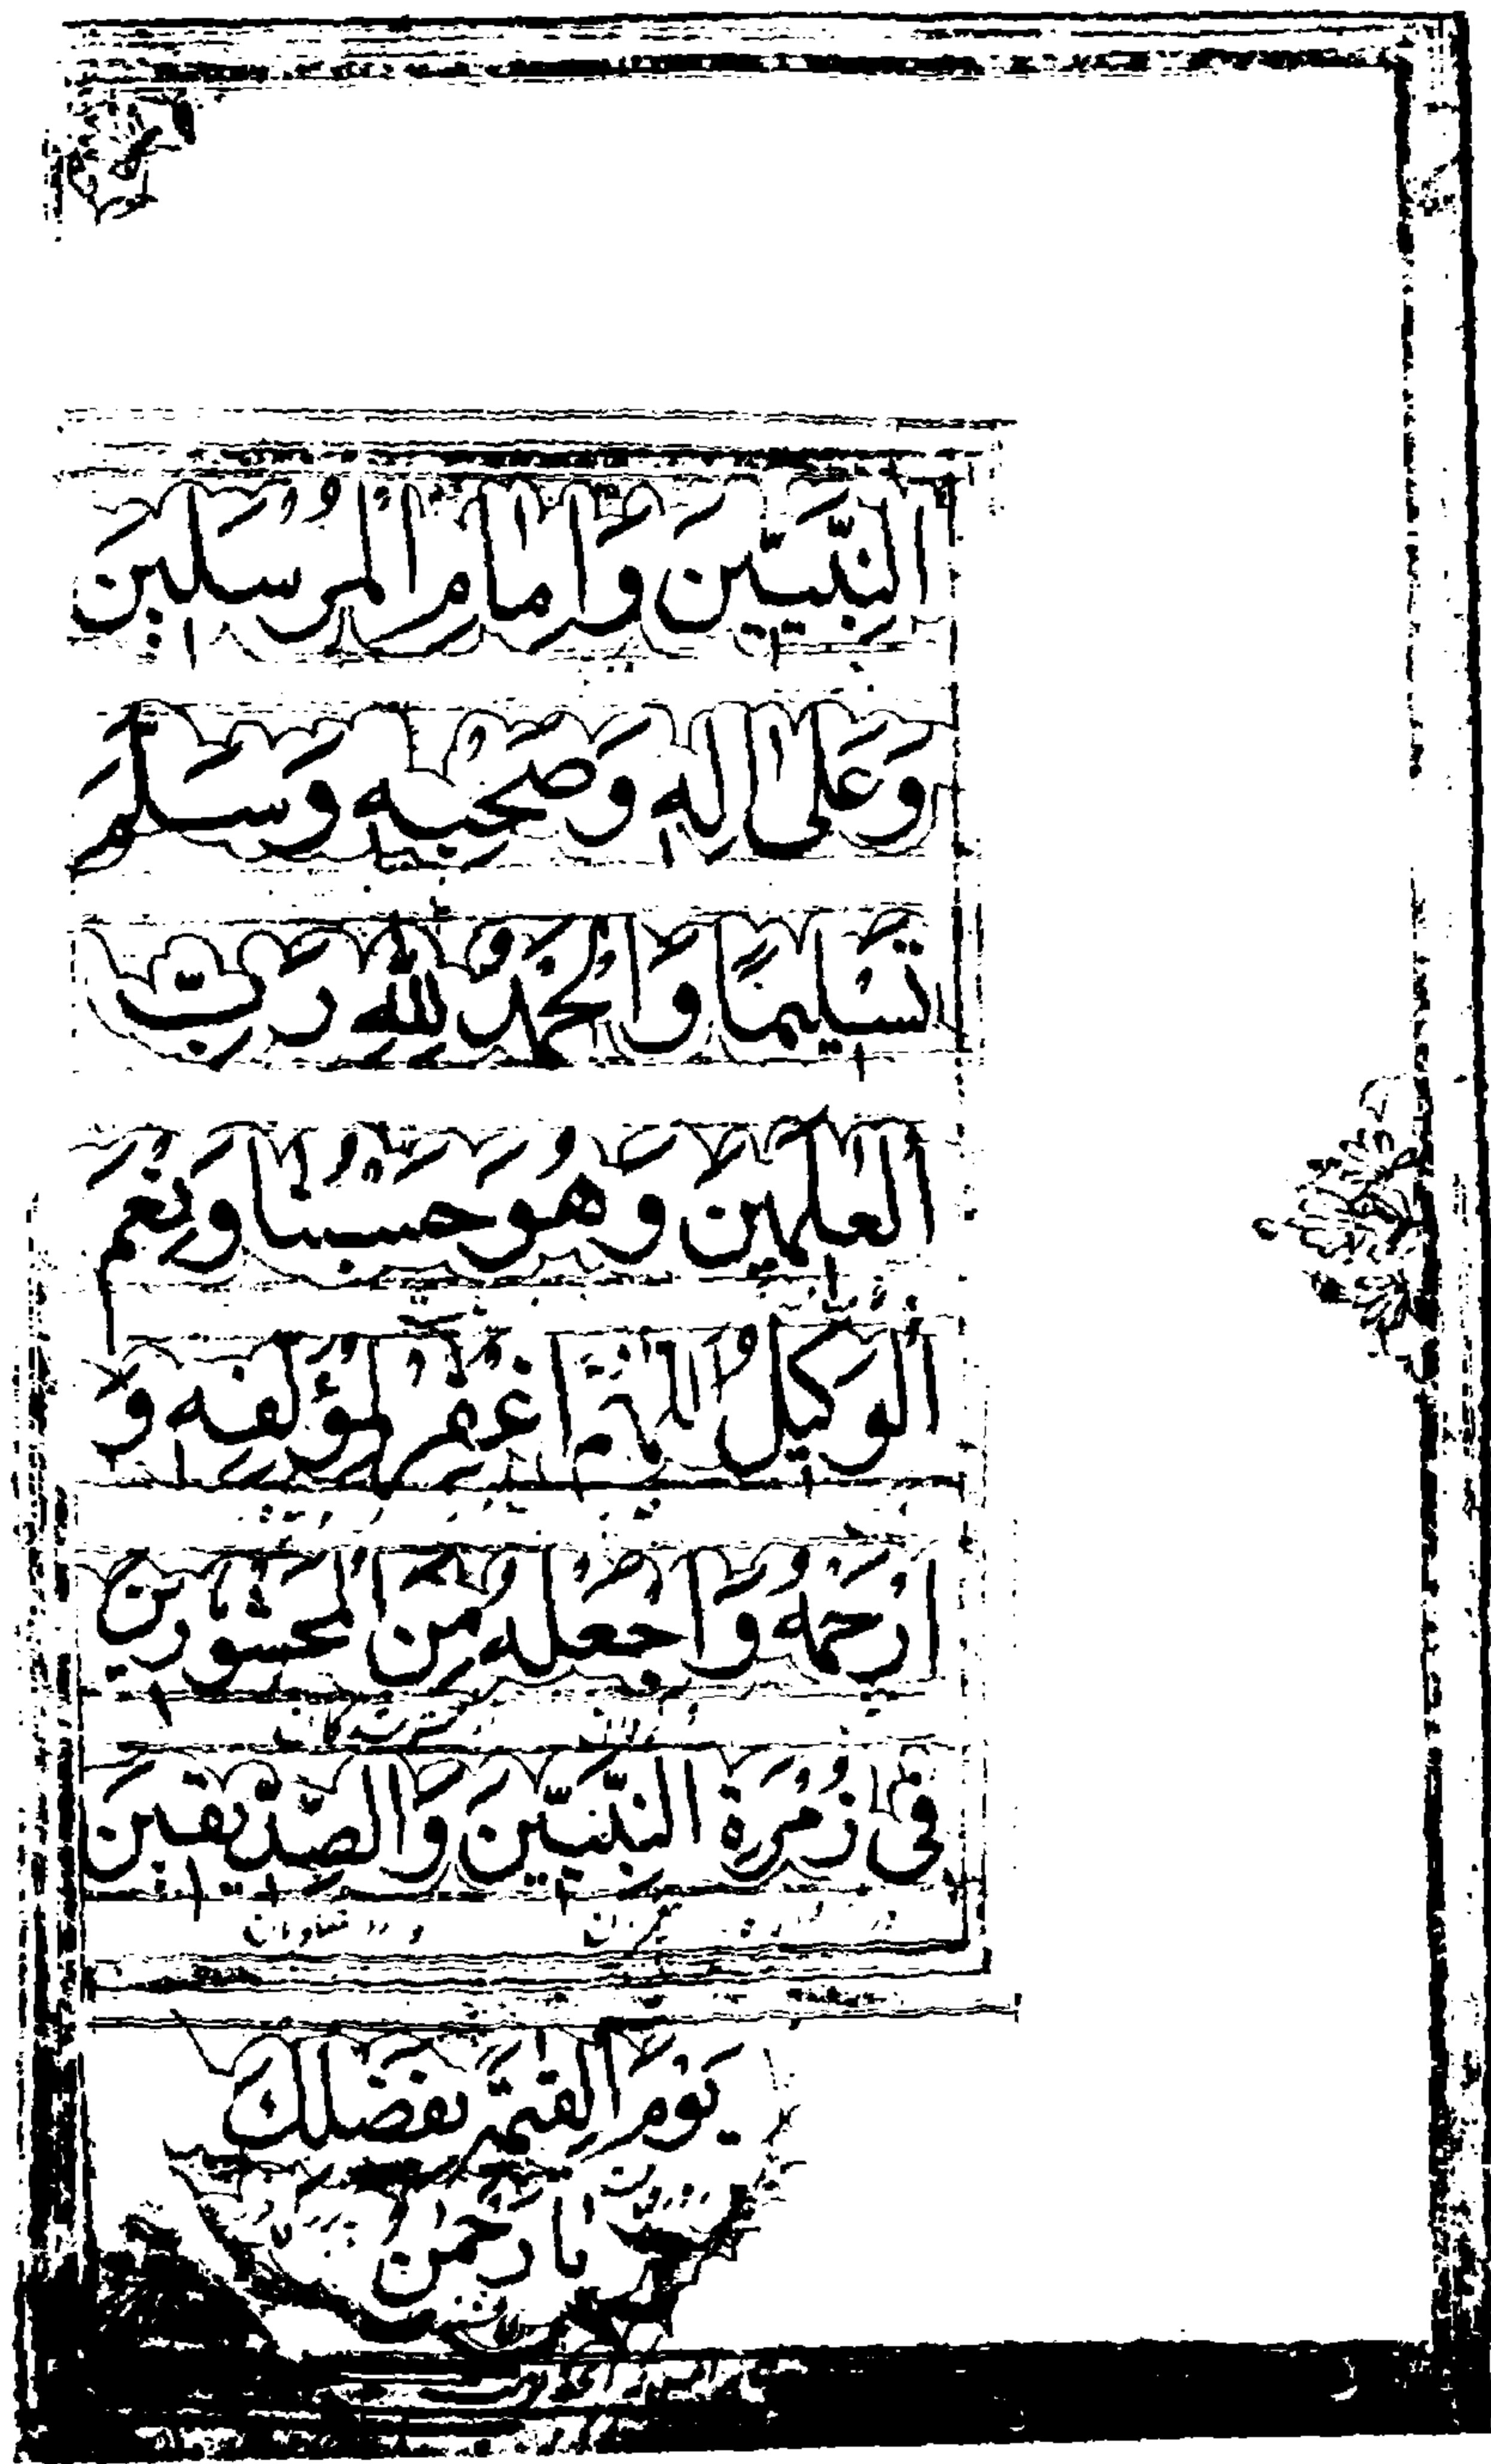 النَّبِيّٖينَ وَاِمَامِ الْمُرْسَلٖينَ
وَعَلٰى اٰلِهٖ وَصَحْبِهٖ وَسَلَّمَ
تَسْلٖيمًا وَالْحَمْدُ لِلّٰهِ رَبِّ
الْعَالَمٖينَ وَهُوَ حَسْبُنَا وَنِعْمَ
الْوَكٖيلُ اَللّٰهُمَّ اغْفِرْ لِمُؤَلِّفِهٖ وَ
ارْحَمْهُ وَاجْعَلْهُ مِنَ الْمَحْشُورٖينَ
فٖى زُمْرَةِ النَّبِيّٖينَ وَالصِّدّٖيقٖينَ
يَوْمَ الْقِيٰمَةِ بِفَضْلِكَ
يَا رَحْمٰنُ